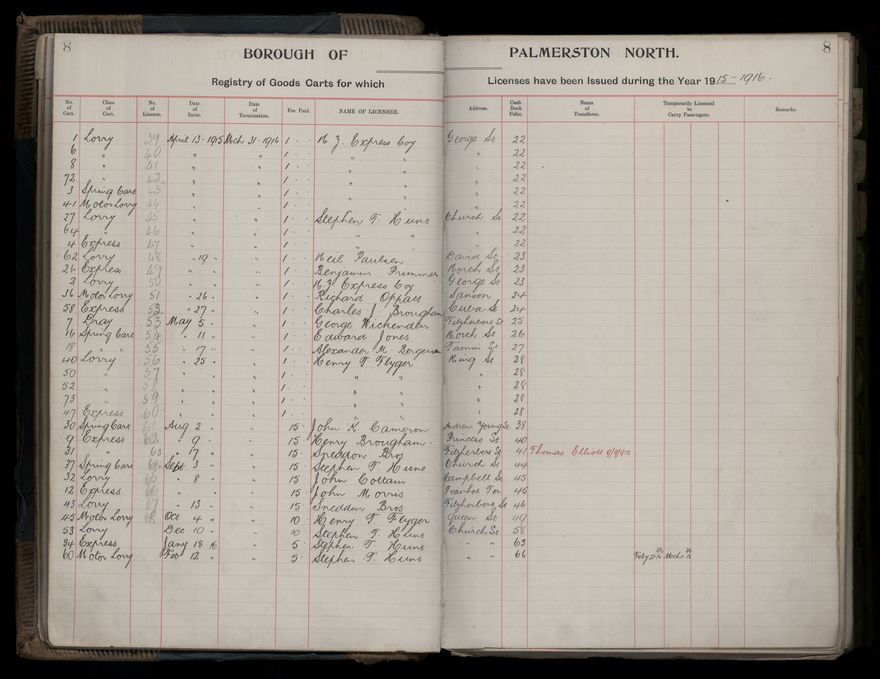 8
8
BOROUGH OF PALMERSTON NORTH.
Registry of Goods Carts for which Licenses have been Issued during the Year 1915-1916.
No. of Cart. Class of Cart. No. of License. Date of Issue. Date of Termination. Fee Paid. NAME OF LICENSEE. Address. Cash Book Folio. Name of Transferee. Temporarily Licensed to Carry Passengers. Remarks.
1 Lorry 39 April 13-1915 Mch 31-1916 1 - - N Z. Express Coy George St 22
6 " 40 " " 1 - - " " " 22
8 " 41 " " 1 - - " " " 22
72 " 42 " " 1 - - " " " 22
3 Spring Cart 43 " " 1 - - " " " 22
41 Motor Lorry 44 " " 1 - - " " " 22
27 Lorry 45 " " 1 - - Stephen T. Hunt Church St 22
64 " 46 " " 1 - - " " " 22
4 Express 47 " " 1 - - " " " 22
62 Lorry 48 " 19 " " 1 - - Neil Paulsen David St 23
26 Express 49 " " " 1 - - Benjamin Primmer North St 23
2 Lorry 50 " " " 1 - - N Z Express Coy George St 23
36 Motor Lorry 51 " 26 " " 1 - - Richard Sanson 24
58 Express 52 " 27 " " 1 - - Charles J. Brougham Cuba St 24
7 Dray 53 May 5 " " 1 - - George Wickenden Fitzherbert St 25
16 Spring Cart 54 " 11 " " 1 - - Edward Jones North St 26
18 " " 55 " 17 " " 1 - - Alexander M. Bergersen Taonui St 27
40 Lorry 56 " 25 " " 1 - - Henry T. Flyger King St 28
50 " 57 " " " 1 - - " " " 28
52 " 58 " " " 1 - - " " " 28
73 " 59 " " " 1 - - " " " 28
47 Express 60 " " " 1 - - " " " 28
30 Spring Cart 61 Aug 2 " " 15 - John K. Cameron Andrew Young St 38
9 Express 62 " 9 " " 15 - Henry Brougham Princess St 40
31 " 63 " 17 " " 15 - Sneddon Bros Fitzherbert St 41 Thomas Elliott 9/9/915
37 Spring Cart 64 Sept 3 " " 15 - Stephen T. Hunt Church St 44
32 Lorry 65 " 8 " " 15 - John Cottam Campbell St 45
12 Express 66 " " " 15 - John Morris Ivanhoe Ter 45
43 Lorry 67 " 13 " " 15 - Sneddon Bros Fitzherbert St 46
45 Motor Lorry 68 Oct 4 " " 10 - Henry T. Flyger Queen St 49
53 Lorry Dec 10 " " 10 Stephen T. Hunt Church St 58
34 Express Jany 18-16 " 5 - Stephen T. Hunt " " 63
60 Motor Lorry Feb 12 " " 5 - Stephen T. Hunt " " 66